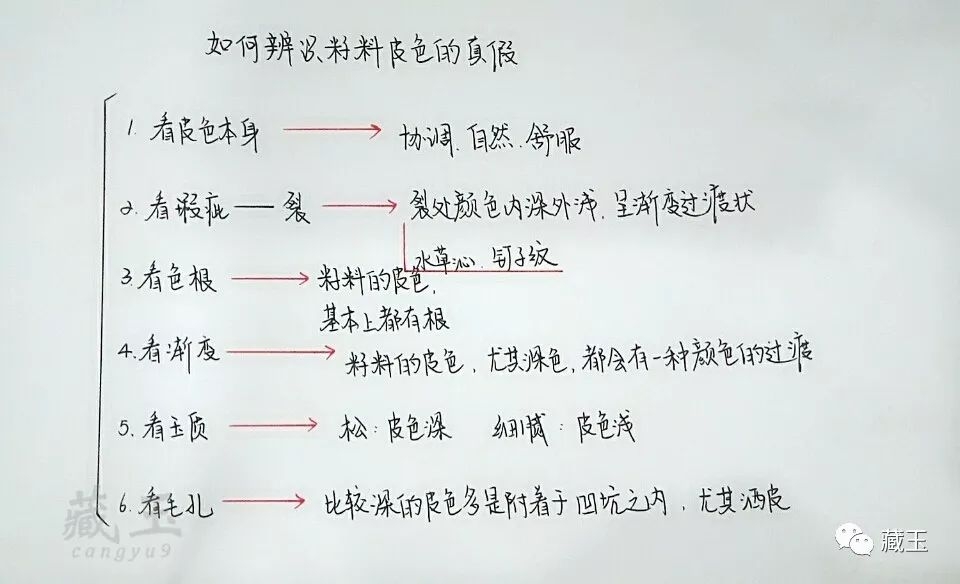 如何辨识籽料皮色的真假
1. 看皮色本身 → 协调.自然.舒服
2. 看瑕疵—裂 → 裂处颜色内深外浅.呈渐变过渡状
水草沁.钉子纹
3. 看色根 → 籽料的皮色,
基本上都有根
4. 看渐变 → 籽料的皮色,尤其深色,都会有一种颜色的过渡
5. 看玉质 → 松:皮色深 细腻:皮色浅
6. 看毛孔 → 比较深的皮色多是附着于凹坑之内.尤其洒皮
藏玉
cangyu9
藏玉